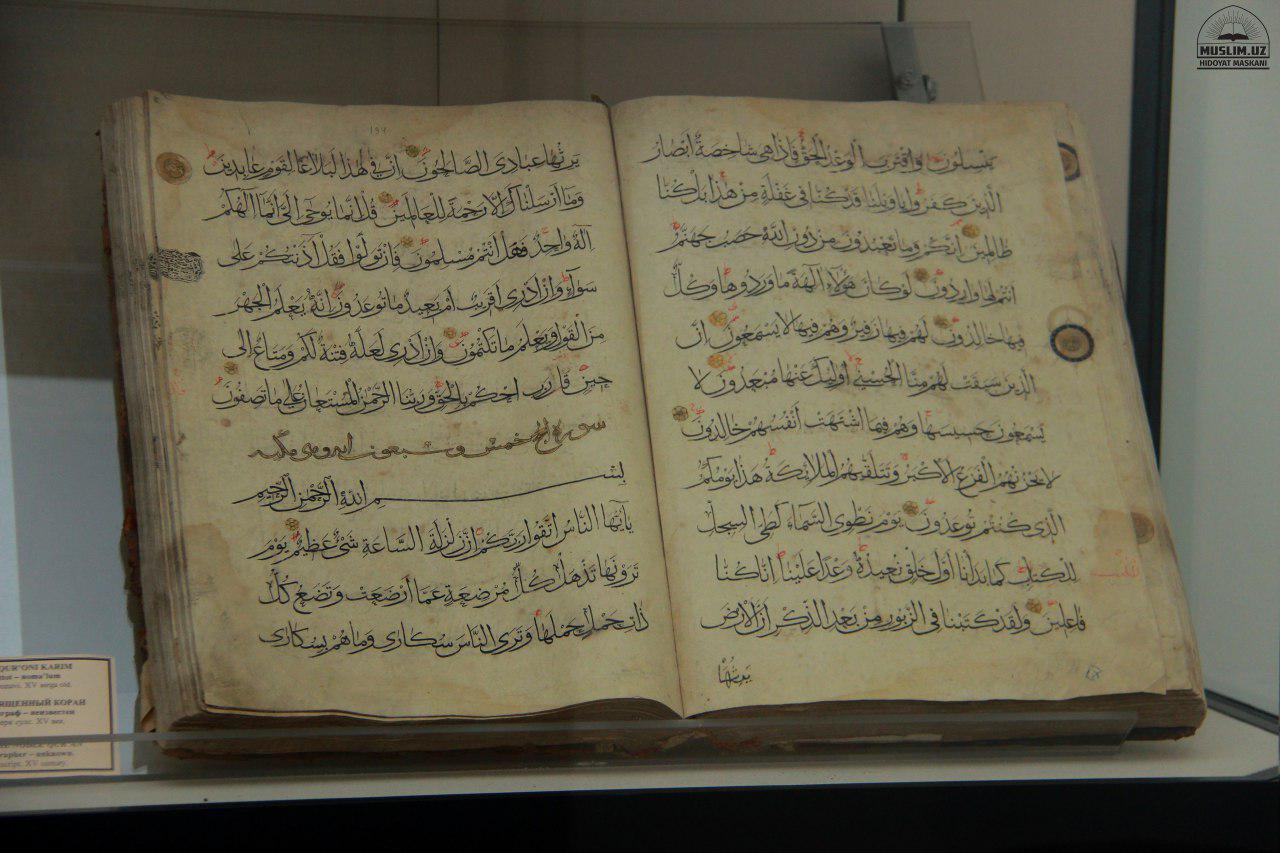 MUSLIM.UZ
HIDOYAT MASKANI
ينسلون واقترب الوعد الحق فاذا هي شاخصة أبصار
الذين كفروا يا ويلنا قد كنا في غفلة من هذا بل كنا
ظالمين انكم وما تعبدون من دون الله حصب جهنم
أنتم لها واردون لو كان هؤلاء آلهة ما وردوها وكل
فيها خالدون لهم فيها زفير وهم فيها لا يسمعون ان
الذين سبقت لهم منا الحسنى أولئك عنها مبعدون لا
يسمعون حسيسها وهم فيما اشتهت أنفسهم خالدون
لا يحزنهم الفزع الاكبر وتتلقيهم الملائكة هذا يومكم
الذي كنتم توعدون يوم نطوي السماء كطي السجل
للكتاب كما بدأنا أول خلق نعيده وعدا علينا انا كنا
فاعلين ولقد كتبنا في الزبور من بعد الذكر ان الارض
يرثها
يرثها عبادي الصالحون ان في هذا لبلاغا لقوم عابدين
وما أرسلناك الا رحمة للعالمين قل انما يوحى الي انما الهكم
اله واحد فهل أنتم مسلمون فان تولوا فقل آذنتكم على
سواء وان أدري أقريب أم بعيد ما توعدون انه يعلم الجهر
من القول ويعلم ما تكتمون وان أدري لعله فتنة لكم ومتاع الى
حين قل رب احكم بالحق وربنا الرحمن المستعان على ما تصفون
سورة الحج خمس و سبعون مكيه
بسم الله الرحمن الرحيم
يا أيها الناس اتقوا ربكم ان زلزلة الساعة شيء عظيم يوم
ترونها تذهل كل مرضعة عما أرضعت وتضع كل
ذات حمل حملها وترى الناس سكارى وما هم بسكارى
QUR'ONI KARIM
noma'lum
XV asrga oid.
КОРАН
неизвестен
XV век.
unknown.
XV century.